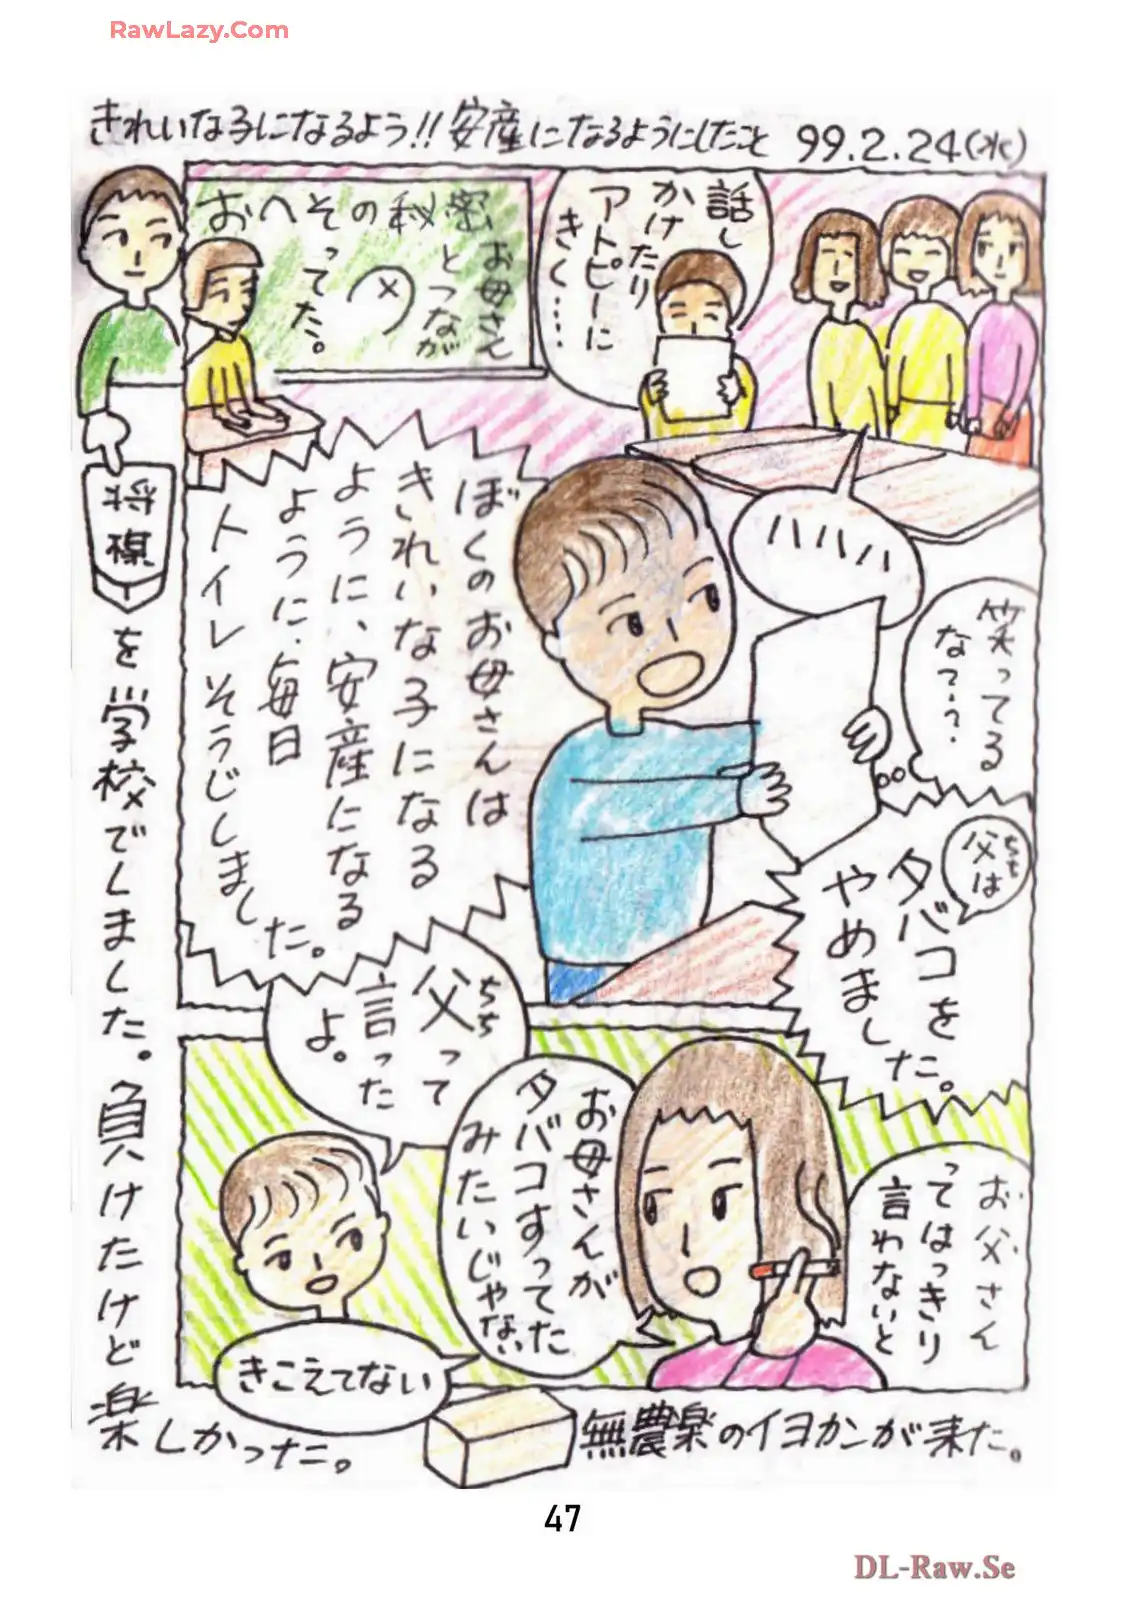 RawLazy.Com
きれいな子になるよう!!安産になるようにしたこと 99.2.24(水)
話し
かけたり
アトピーに
きく・・・・
おへその秘密
お母さん
とつなが
ってた。
ハハハハ
笑ってる
なて・・?
ぼくのお母さんは
きれいな子になる
ように、安産になる
ように、毎日
トイレそうじしました。
父は
ちち
タバコを
やめました。
父って
ちち
言った
よ。
お父さん
ってはっきり
言わないと
お母さんが
タバコすってた
みたいじゃない
きこえてない
将棋
を学校でしました。負けたけど
楽しかった。
無農薬のイヨカンが来た。
47
DL-Raw.Se